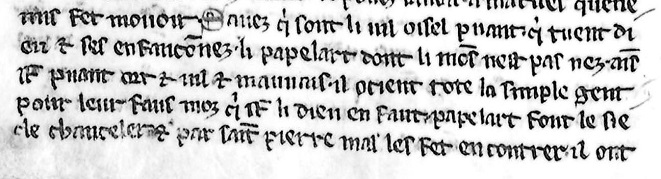 fet mouoir Sauez q̃i sont li uil oisel puant. q̃i tuent di
eu ⁊ ses enfancõnez. li papelart dont li mõs nest pas nez.
st̃ puant ort ⁊ uil ⁊ mauuais. il ocient tote la simple gent
pour leur faus moz q̃i st̃ li dieu en fant. papelart font le sie
cle chanceler ⁊ par sait̃ pierre mal les fet en contrer. il ont